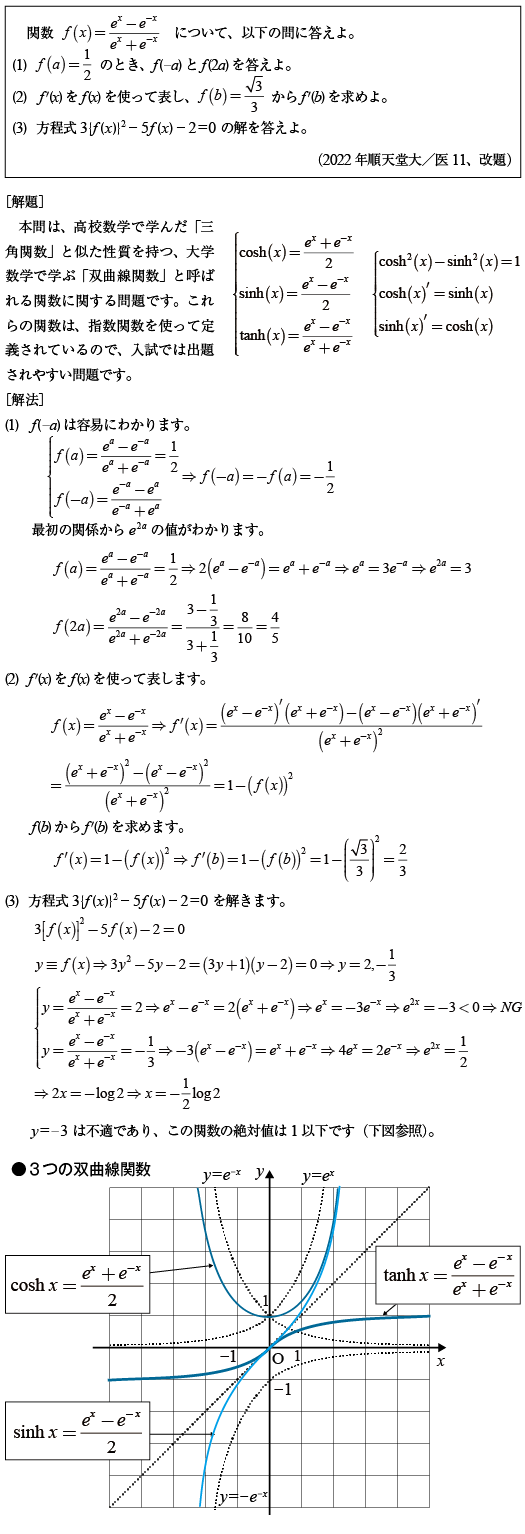 関数 f(x)=(e^x−e^−x)/(e^x+e^−x) について、以下の問に答えよ。
(1) f(a)=1/2 のとき、f(−a)とf(2a)を答えよ。
(2) f′(x)をf(x)を使って表し、f(b)=√3/3 からf′(b)を求めよ。
(3) 方程式 3|f(x)|²−5f(x)−2=0 の解を答えよ。
(2022年順天堂大／医11、改題)
[解題]
本問は、高校数学で学んだ「三
角関数」と似た性質を持つ、大学
数学で学ぶ「双曲線関数」と呼ば
れる関数に関する問題です。これ
らの関数は、指数関数を使って定
義されているので、入試では出題
されやすい問題です。
cosh(x)=(e^x+e^−x)/2
sinh(x)=(e^x−e^−x)/2
tanh(x)=(e^x−e^−x)/(e^x+e^−x)
cosh²(x)−sinh²(x)=1
cosh(x)′=sinh(x)
sinh(x)′=cosh(x)
[解法]
(1) f(−a)は容易にわかります。
f(a)=(e^a−e^−a)/(e^a+e^−a)=1/2
f(−a)=(e^−a−e^a)/(e^−a+e^a)
⇒f(−a)=−f(a)=−1/2
最初の関係から e^2a の値がわかります。
f(a)=(e^a−e^−a)/(e^a+e^−a)=1/2⇒2(e^a−e^−a)=e^a+e^−a⇒e^a=3e^−a⇒e^2a=3
f(2a)=(e^2a−e^−2a)/(e^2a+e^−2a)=(3−1/3)/(3+1/3)=8/10=4/5
(2) f′(x)をf(x)を使って表します。
f(x)=(e^x−e^−x)/(e^x+e^−x)⇒f′(x)=((e^x−e^−x)′(e^x+e^−x)−(e^x−e^−x)(e^x+e^−x)′)/(e^x+e^−x)²
=((e^x+e^−x)²−(e^x−e^−x)²)/(e^x+e^−x)²=1−(f(x))²
f(b)からf′(b)を求めます。
f′(x)=1−(f(x))²⇒f′(b)=1−(f(b))²=1−(√3/3)²=2/3
(3) 方程式 3|f(x)|²−5f(x)−2=0 を解きます。
3[f(x)]²−5f(x)−2=0
y≡f(x)⇒3y²−5y−2=(3y+1)(y−2)=0⇒y=2,−1/3
y=(e^x−e^−x)/(e^x+e^−x)=2⇒e^x−e^−x=2(e^x+e^−x)⇒e^x=−3e^−x⇒e^2x=−3<0⇒NG
y=(e^x−e^−x)/(e^x+e^−x)=−1/3⇒−3(e^x−e^−x)=e^x+e^−x⇒4e^x=2e^−x⇒e^2x=1/2
⇒2x=−log2⇒x=−1/2 log2
y=−3は不適であり、この関数の絶対値は1以下です（下図参照）。
●3つの双曲線関数
y=e^−x
y
y=e^x
cosh x=(e^x+e^−x)/2
tanh x=(e^x−e^−x)/(e^x+e^−x)
1
−1
O
1
x
−1
sinh x=(e^x−e^−x)/2
y=−e^−x